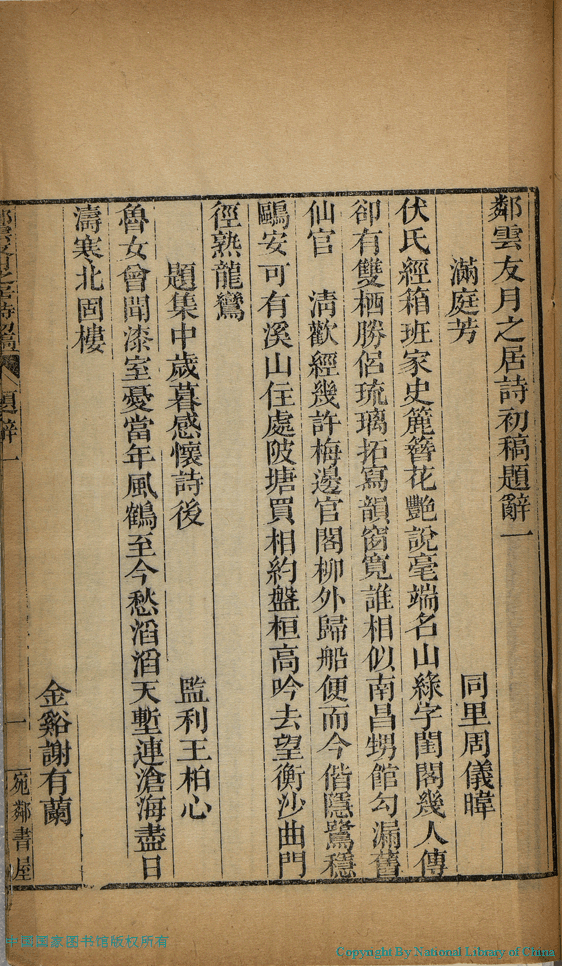 鄰雲友月之居詩初稿題辭一
滿庭芳　同里周儀暐
伏氏經箱班家史簏簪花艷說毫端名山綠字閨閣幾人傳
卻有雙栖勝侶琉璃拓寫韻窗寬誰相似南昌甥館勾漏舊
仙官　清歡經幾許梅邊官閣柳外歸船便而今偕隱鷺穩
鷗安可有溪山住處陂塘買相約盤桓高吟去望衡沙曲門
徑熟龍鸞
題集中歲暮感懷詩後　監利王柏心
魯女曾聞漆室憂當年風鶴至今愁滔滔天塹連滄海盡日
濤寒北固樓
金谿謝有蘭
鄰雲友月之居詩初稿　題辭一
一
宛鄰書屋
中國國家图书馆版权所有
Copyright By National Library of China